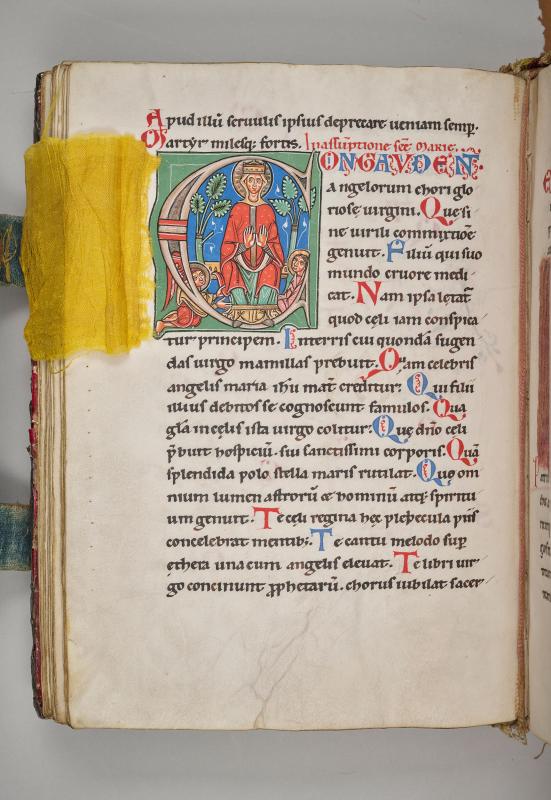 Apud illū seruulis ipsius deprecare ueniam semp.
Martyr milesq; fortis. In assūptione scē Marie.
CONGAUDENT
angelorum chori glo
riose uirgini. Que si
ne uirili commixtiōe
genuit. Filiū qui suo
mundo cruore medi
cat. Nam ipsa letat̄
quod celi iam conspica
tur principem. In terris cui quondā sugen
das uirgo mamillas prebuit. Quam celebris
angelis maria ihū mat̄ creditur: Qui filii
illius debitos se cognoscunt famulos. Qua
gl̄a in celis ista uirgo colitur: Quę dn̄o celi
p̄buit hospiciū. sui sanctissimi corporis. Quā
splendida polo stella maris rutilat. Quę om
nium lumen astrorū & hominū atq; spiritu
um genuit. Te celi regina hęc plebecula piis
concelebrat mentib; Te cantu melodo sup
ethera una cum angelis eleuat. Te libri uir
go concinunt ꝓphetarū. chorus iubilat sacer